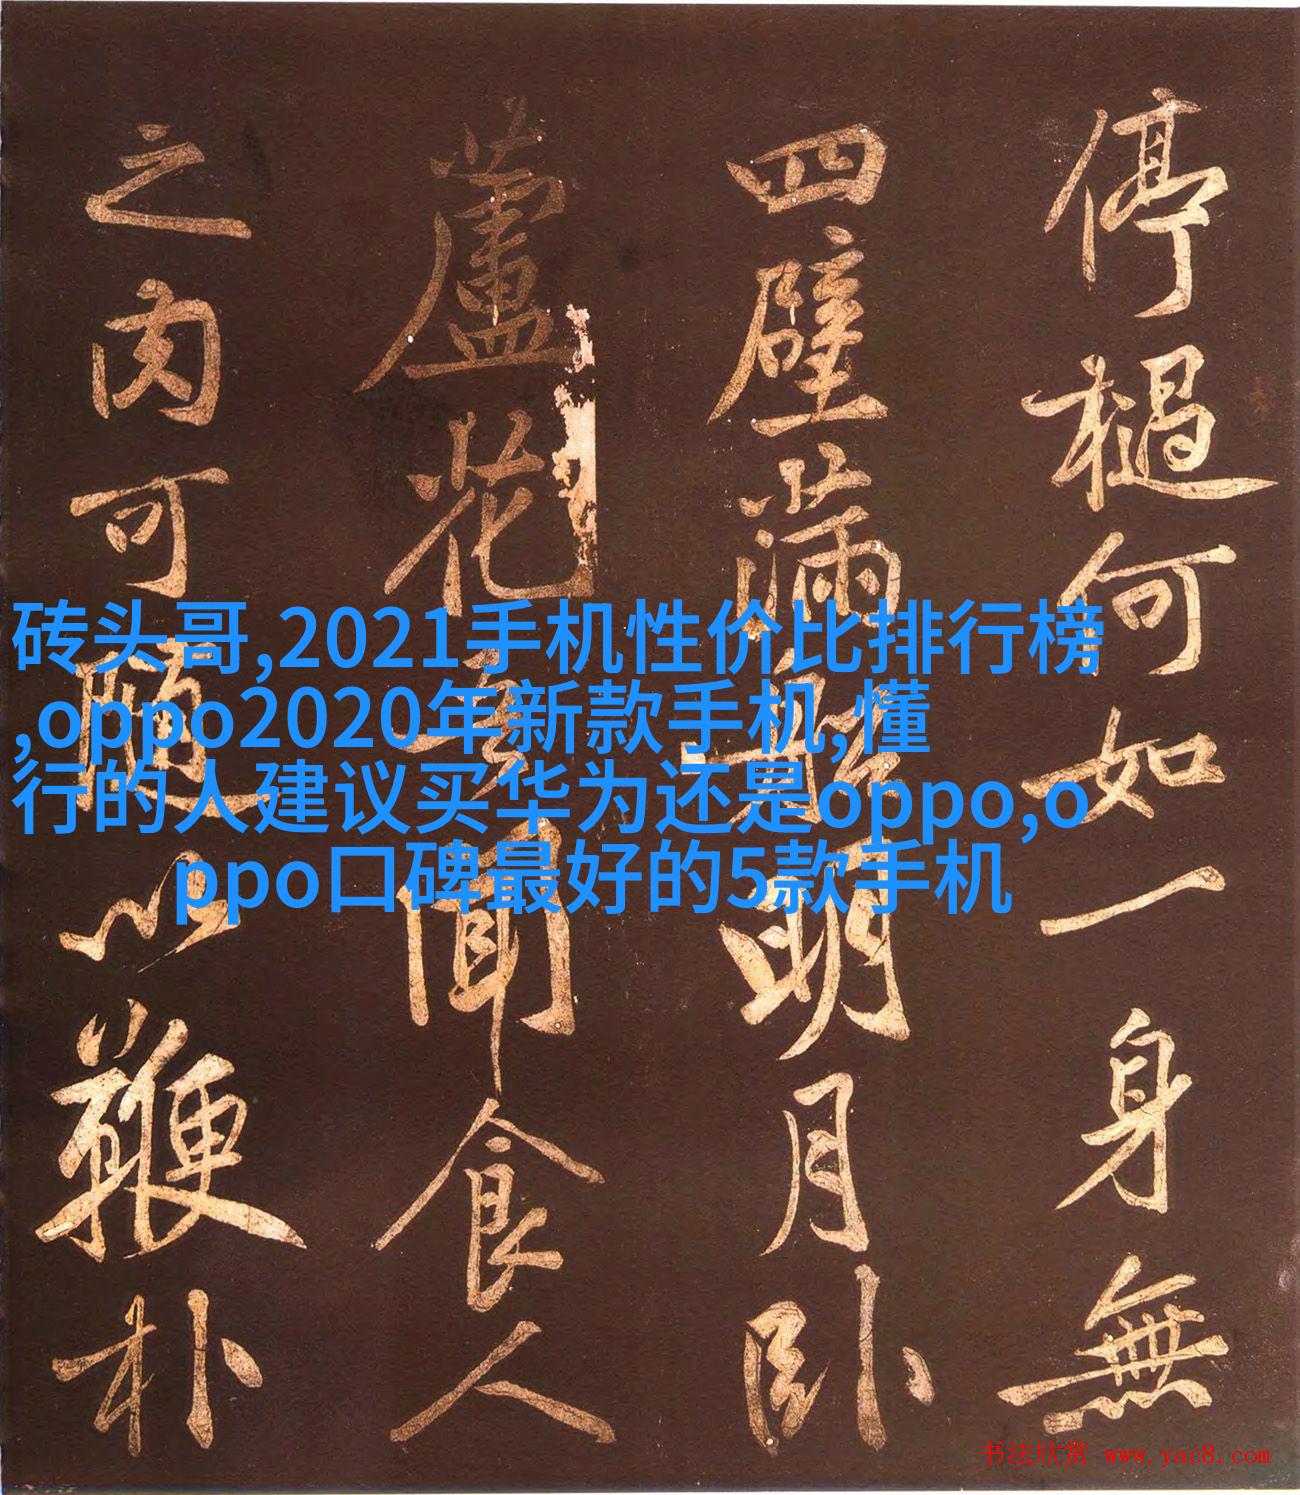 停
檛何如一身無
四壁滿
明月卧
蘆花
聞食人
之肉可
以鞭朴
砖头哥,2021手机性价比排行榜
,oppo2020年新款手机,懂
行的人建议买华为还是oppo,o
ppo口碑最好的5款手机
书法欣赏 www.yac8.com